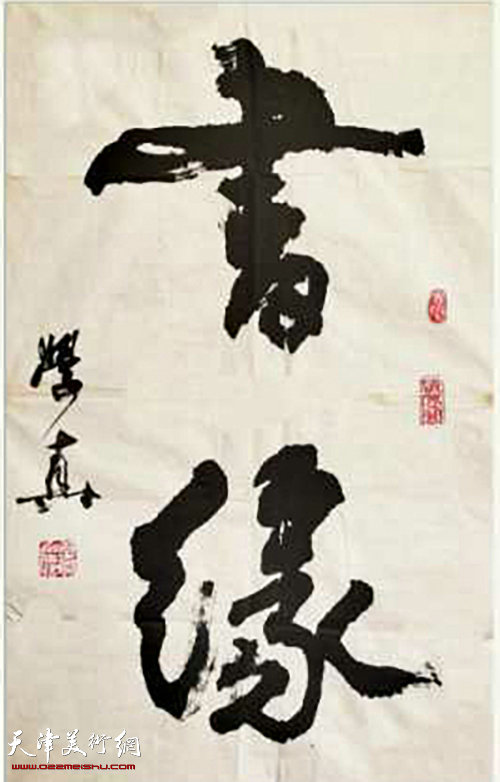 書缘
學真
天津美術網
www.022meishu.com